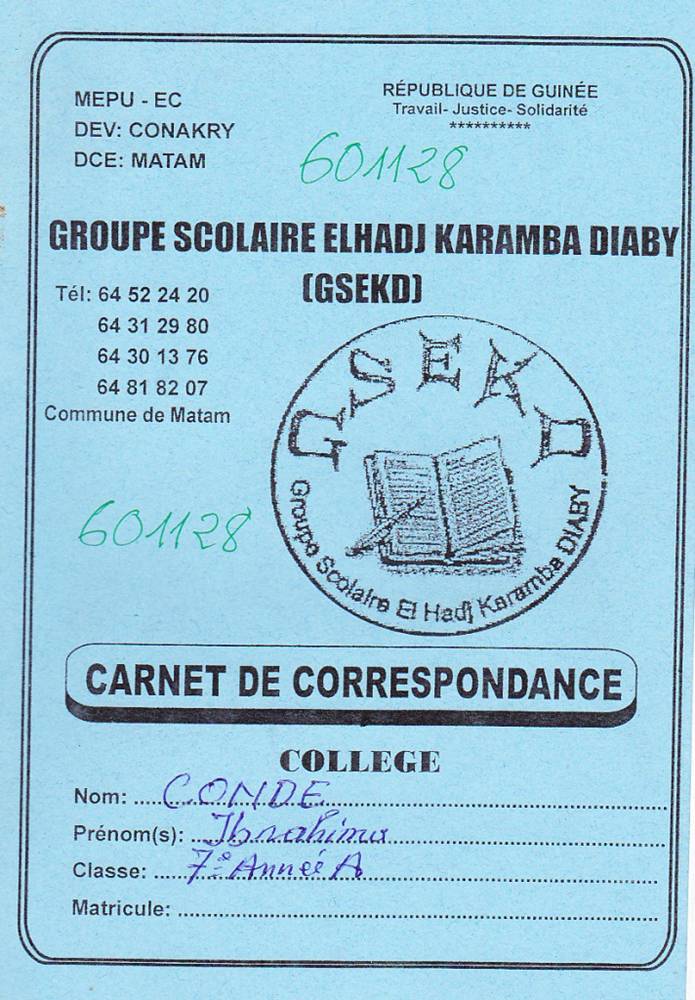 MEPU - EC
DEV: CONAKRY
DCE: MATAM
RÉPUBLIQUE DE GUINÉE
Travail- Justice- Solidarité
**********
601128
GROUPE SCOLAIRE ELHADJ KARAMBA DIABY
(GSEKD)
Tél: 64 52 24 20
64 31 29 80
64 30 13 76
64 81 82 07
Commune de Matam
GSEKD
Groupe Scolaire El Hadj Karamba DIABY
601128
CARNET DE CORRESPONDANCE
COLLEGE
Nom: CONDE
Prénom(s): Ibrahima
Classe: 7è Année A
Matricule: